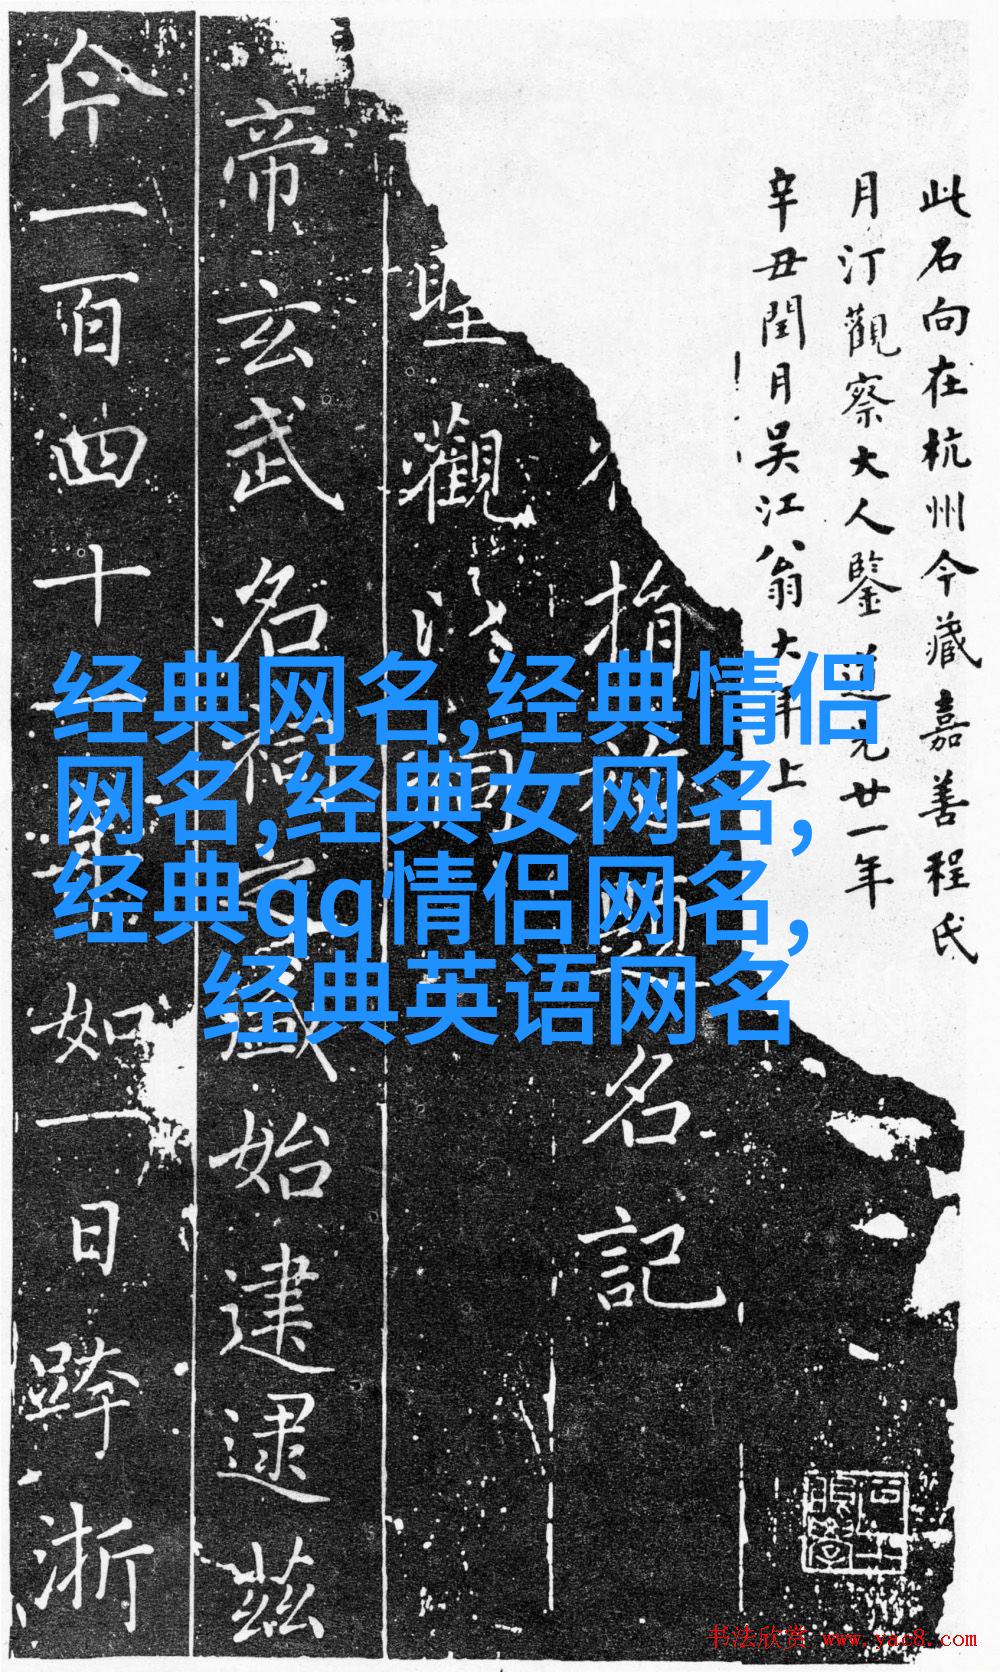 此石向在杭州今藏嘉善程氏
月汀觀察大人鑒 光廿一年
辛丑閏月吳江翁大年上
指
名記
聖觀
帝玄武名
盛始建逮茲
今一百四十
如一日蹄浙
经典网名,经典情侣
网名,经典女网名,
经典qq情侣网名,
经典英语网名
书法欣赏 www.yac8.com